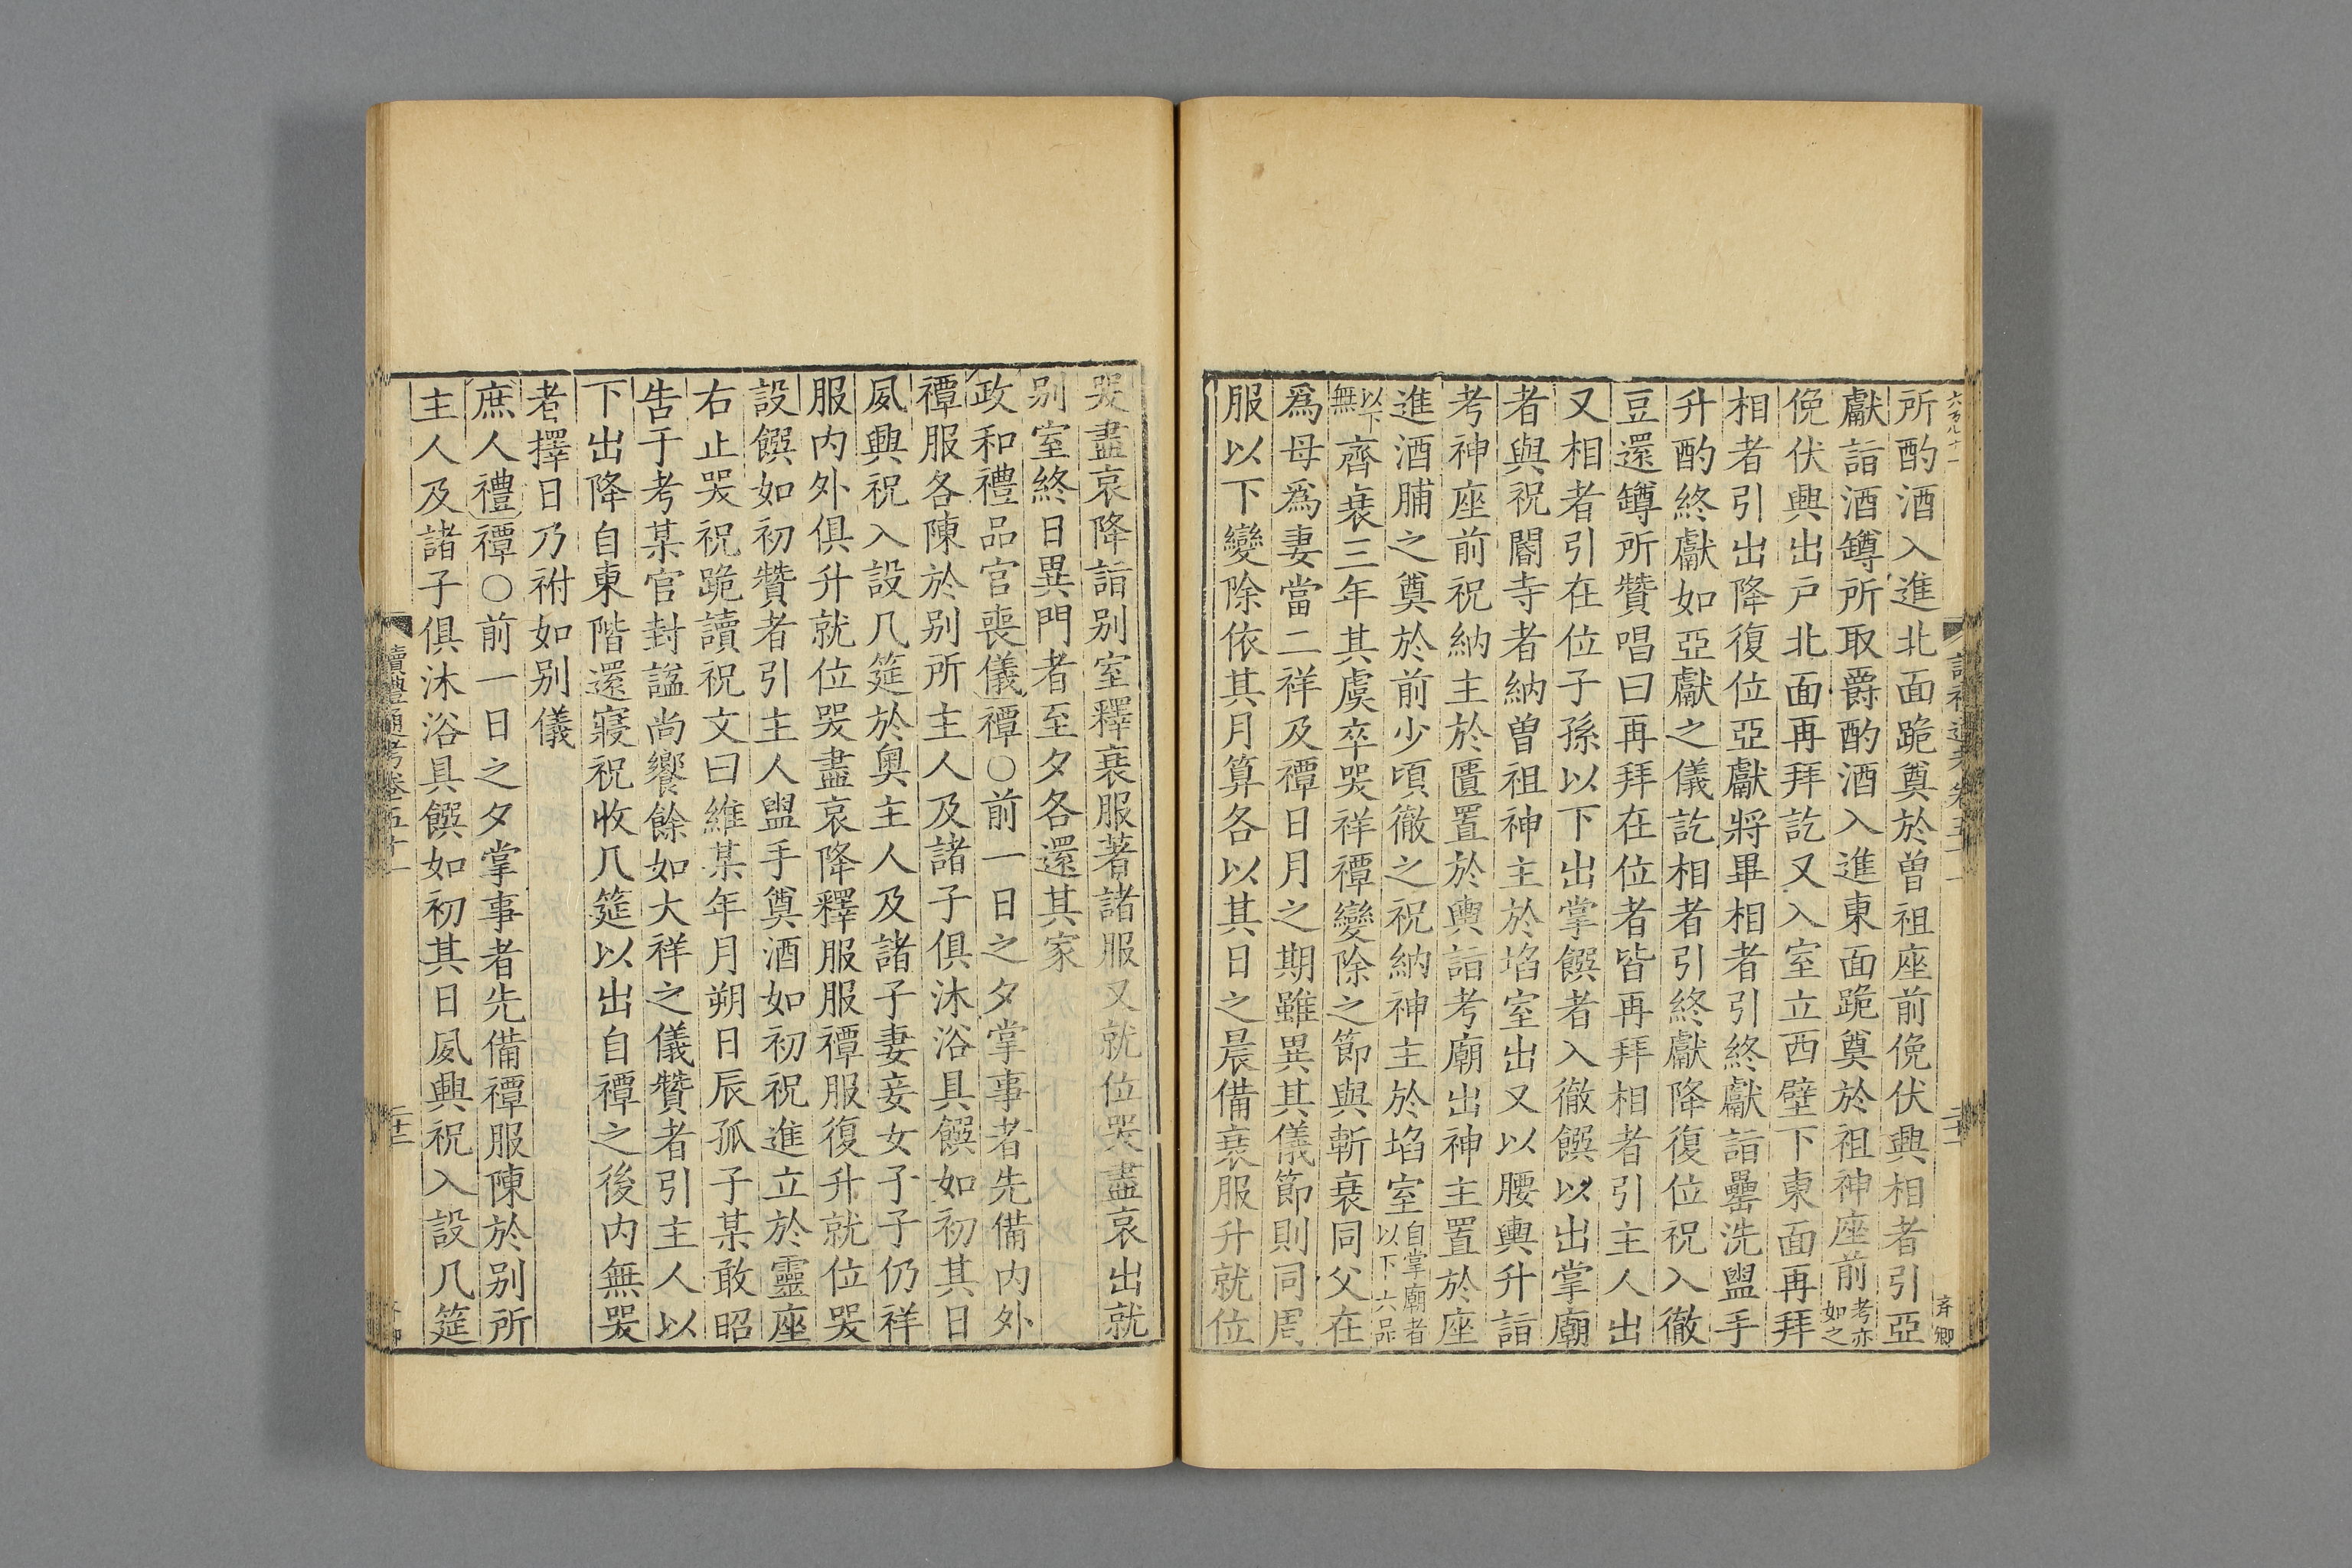 所酌酒入進北面跪奠於曾祖座前俛伏興相者引亞
獻詣酒罇所取爵酌酒入進東面跪奠於祖神座前考亦如之
俛伏興出戶北面再拜訖又入室立西壁下東面再拜
相者引出降復位亞獻將畢相者引終獻詣罍洗盥手
升酌終獻如亞獻之儀訖相者引終獻降復位祝入徹
豆還罇所贊唱曰再拜在位者皆再拜相者引主人出
又相者引在位子孫以下出掌饌者入徹饌以出掌廟
者與祝閽寺者納曾祖神主於埳室出又以腰輿升詣
考神座前祝納主於匱置於輿詣考廟出神主置於座
進酒脯之奠於前少頃徹之祝納神主於埳室自掌廟者以下六品
以下無齊衰三年其虞卒哭祥禫變除之節與斬衰同父在
爲母爲妻當二祥及禫日月之期雖異其儀節則同周
服以下變除依其月算各以其日之晨備衰服升就位
哭盡哀降詣别室釋衰服著諸服又就位哭盡哀出就
别室終日異門者至夕各還其家
政和禮品官喪儀禫○前一日之夕掌事者先備内外
禫服各陳於别所主人及諸子俱沐浴具饌如初其日
夙興祝入設几筵於奧主人及諸子妻妾女子子仍祥
服内外俱升就位哭盡哀降釋服服禫服復升就位哭
設饌如初贊者引主人盥手奠酒如初祝進立於靈座
右止哭祝跪讀祝文曰維某年月朔日辰孤子某敢昭
告于考某官封謚尚饗餘如大祥之儀贊者引主人以
下出降自東階還寢祝收几筵以出自禫之後内無哭
者擇日乃祔如别儀
庶人禮禫○前一日之夕掌事者先備禫服陳於别所
主人及諸子俱沐浴具饌如初其日夙興祝入設几筵
讀禮通考卷五十一